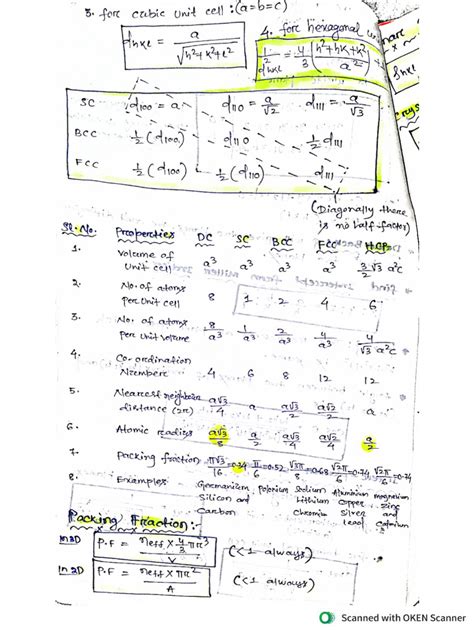 3. for cubic unit cell : (a=b=c)
dhkl = a / √h²+k²+l²
4. for hexagonal
1/d²hkl = 4/3 (h²+hk+k² / a²)
SC d100 = a d110 = a/√2 d111 = a/√3
BCC 1/2 (d100) d110 1/2 d111
FCC 1/2 (d100) 1/2 (d110) d111
(Diagonally there
is no half factor)
Sl. No. Properties DC SC BCC FCC HCP
1. Volume of
unit cell a³ a³ a³ a³ 3/2 √3 a²c
2. No. of atoms
per unit cell 8 1 2 4 6
3. No. of atoms
per unit volume 8/a³ 1/a³ 2/a³ 4/a³ 4/√3 a²c
4. Co-ordination
Number 4 6 8 12 12
5. Nearest neighbour
distance (2r) a√3/4 a a√3/2 a√2/2 a
6. Atomic radius a√3/8 a/2 a√3/4 a√2/4 a/2
7. Packing fraction π√3/16 = 0.34 π/6 = 0.52 √3π/8 = 0.68 √2π/6 = 0.74 √2π/6 = 0.74
8. Examples Germanium Polonium Sodium Aluminium magnesium
Silicon and Lithium Copper zinc
Carbon Chromium Silver and
Lead Cadmium
Packing Fraction :
In 3D P.F = neff × 4/3 πr³ / V (<1 always)
In 2D P.F = neff × πr² / A (<1 always)
Scanned with OKEN Scanner